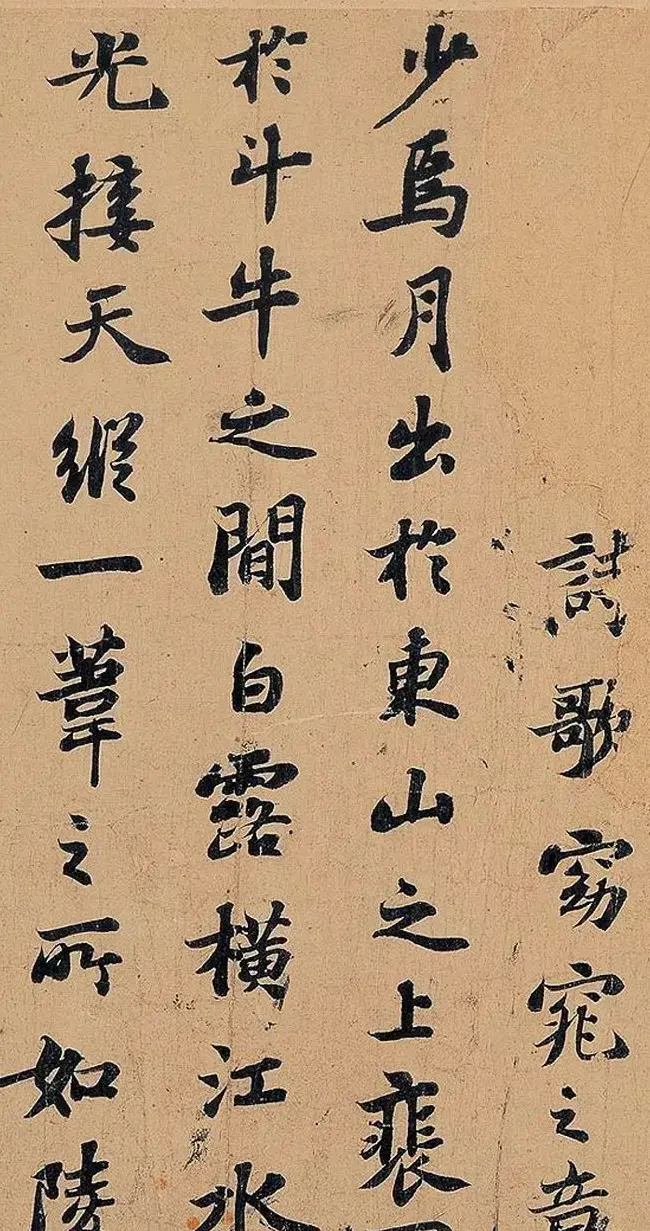 詩歌窈窕之章
少焉月出於東山之上裴
於斗牛之間白露橫江水
光接天縱一葦之所如陵